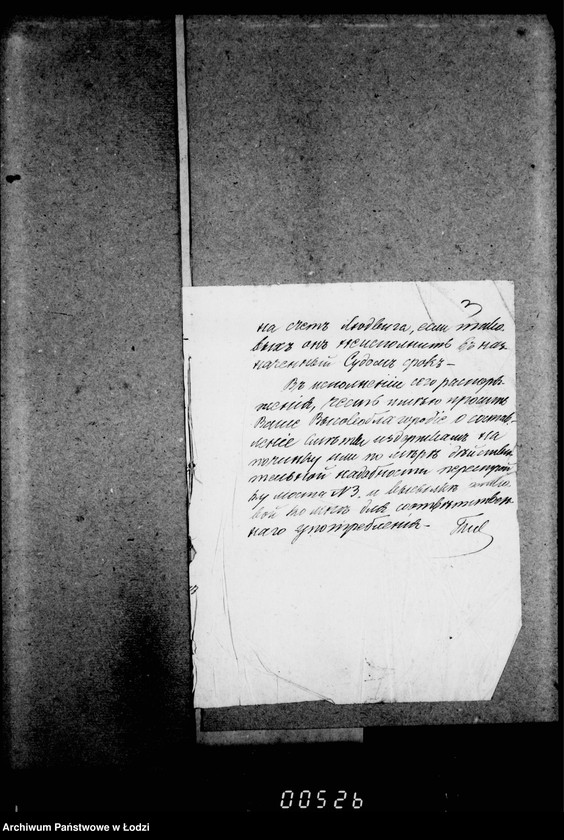 3
на счетъ Людвига, если тако
выхъ онъ неисполнитъ въ наз
наченный Судомъ срокъ –
Въ исполненіи сего распоря
женія, честь имѣю просить
Ваше Высокоблагородіе о состав
леніе смѣты издержкамъ на
починку или по мѣрѣ действи
тельной надобности перестрой
ку моста №3. и высылкѣ тако
вой ко мнѣ для соотвѣтствен
наго употребленія –
00526
Archiwum Państwowe w Łodzi